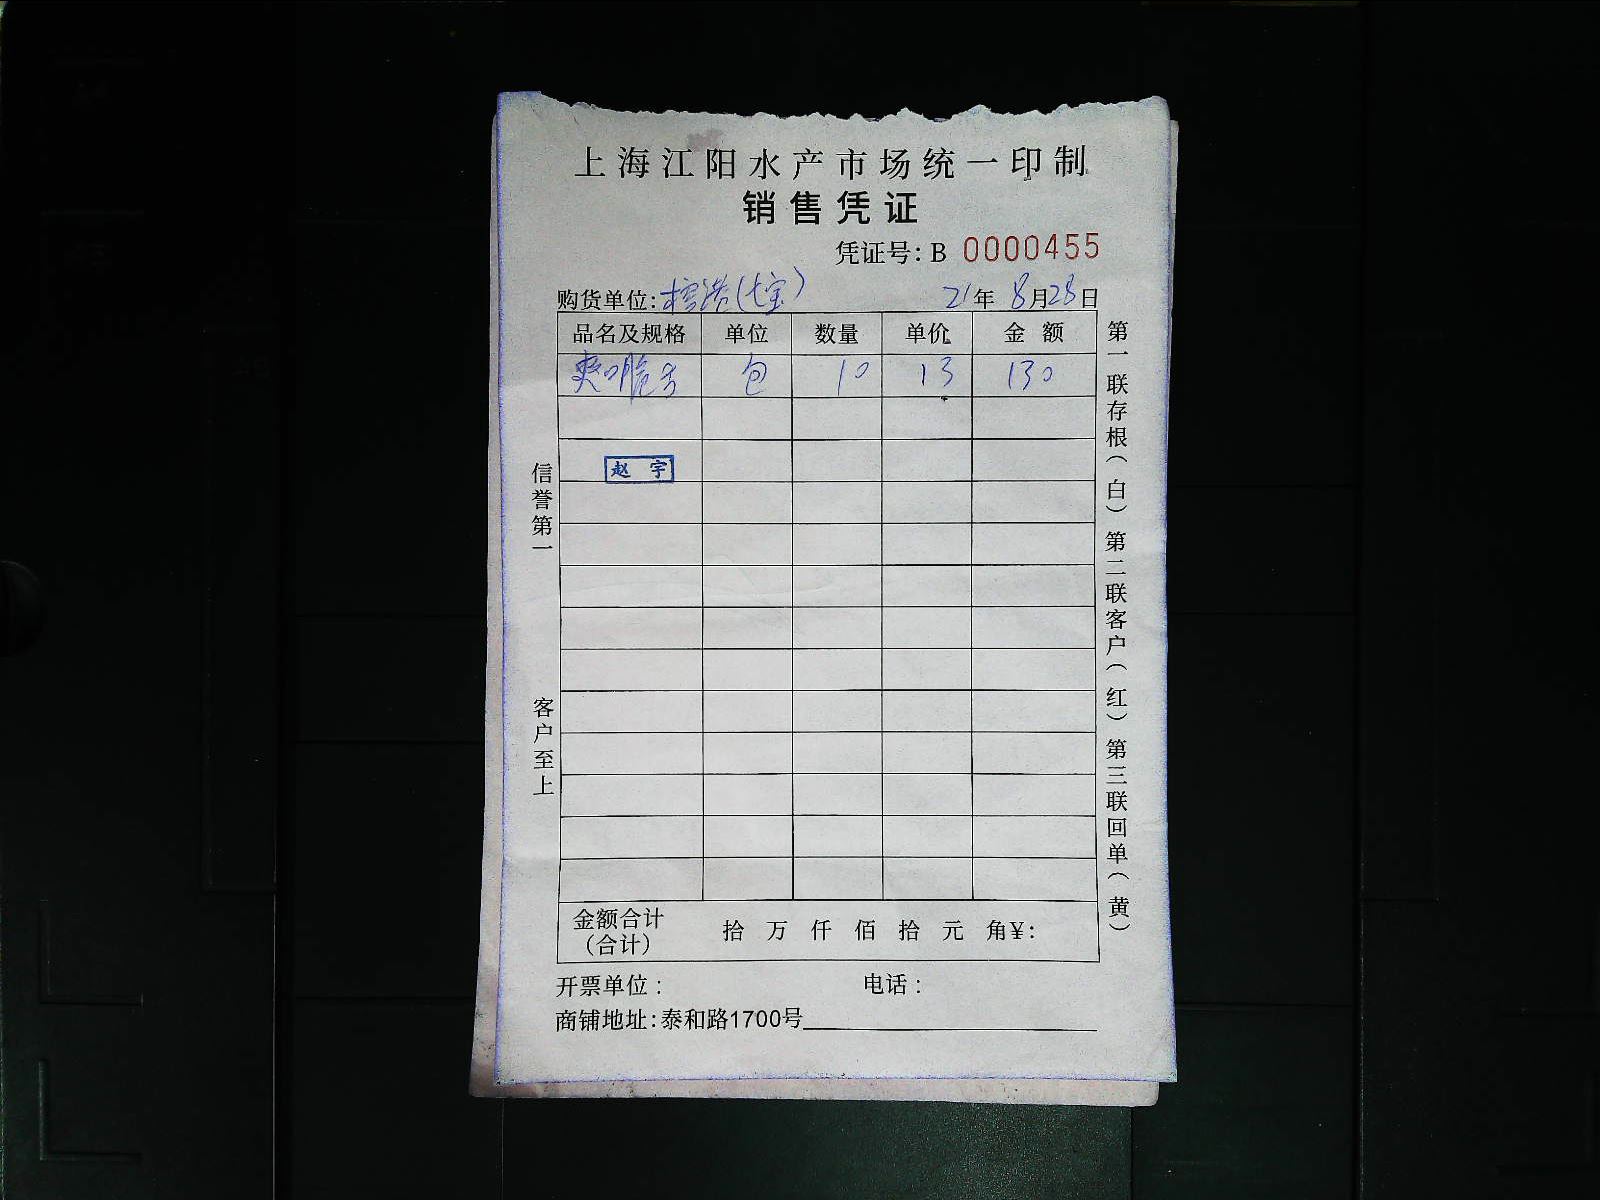 上海江阳水产市场统一印制
销售凭证
凭证号:B 0000455
购货单位: (七宝) 21年 8月28日
品名及规格 单位 数量 单价 金额
爽口脆舌 包 10 13 130
赵宇
金额合计
(合计)
拾 万 仟 佰 拾 元 角¥:
开票单位: 电话:
商铺地址:泰和路1700号
信誉第一 客户至上
第一联存根(白) 第二联客户(红) 第三联回单(黄)